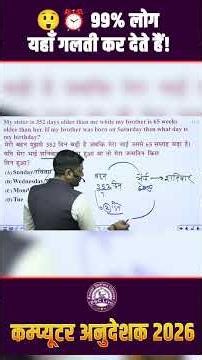 99% लोग
यहाँ गलती कर देते हैं!
My sister is 352 days older than me while my brother is 65 weeks
older than her. If my brother was born on Saturday then what day is
my birthday?
मेरी बहन मुझसे 352 दिन बड़ी है जबकि मेरा भाई उससे 65 सप्ताह बड़ा है।
यदि मेरा भाई शनिवार को पैदा हुआ था तो मेरा जन्मदिन किस
दिन हुआ?
(A) Sunday/रविवार
(B) Wednesday/
(C) Mon
(D) Tue
बहन
शनिवार
352 दिन
कम्प्यूटर अनुदेशक 2026